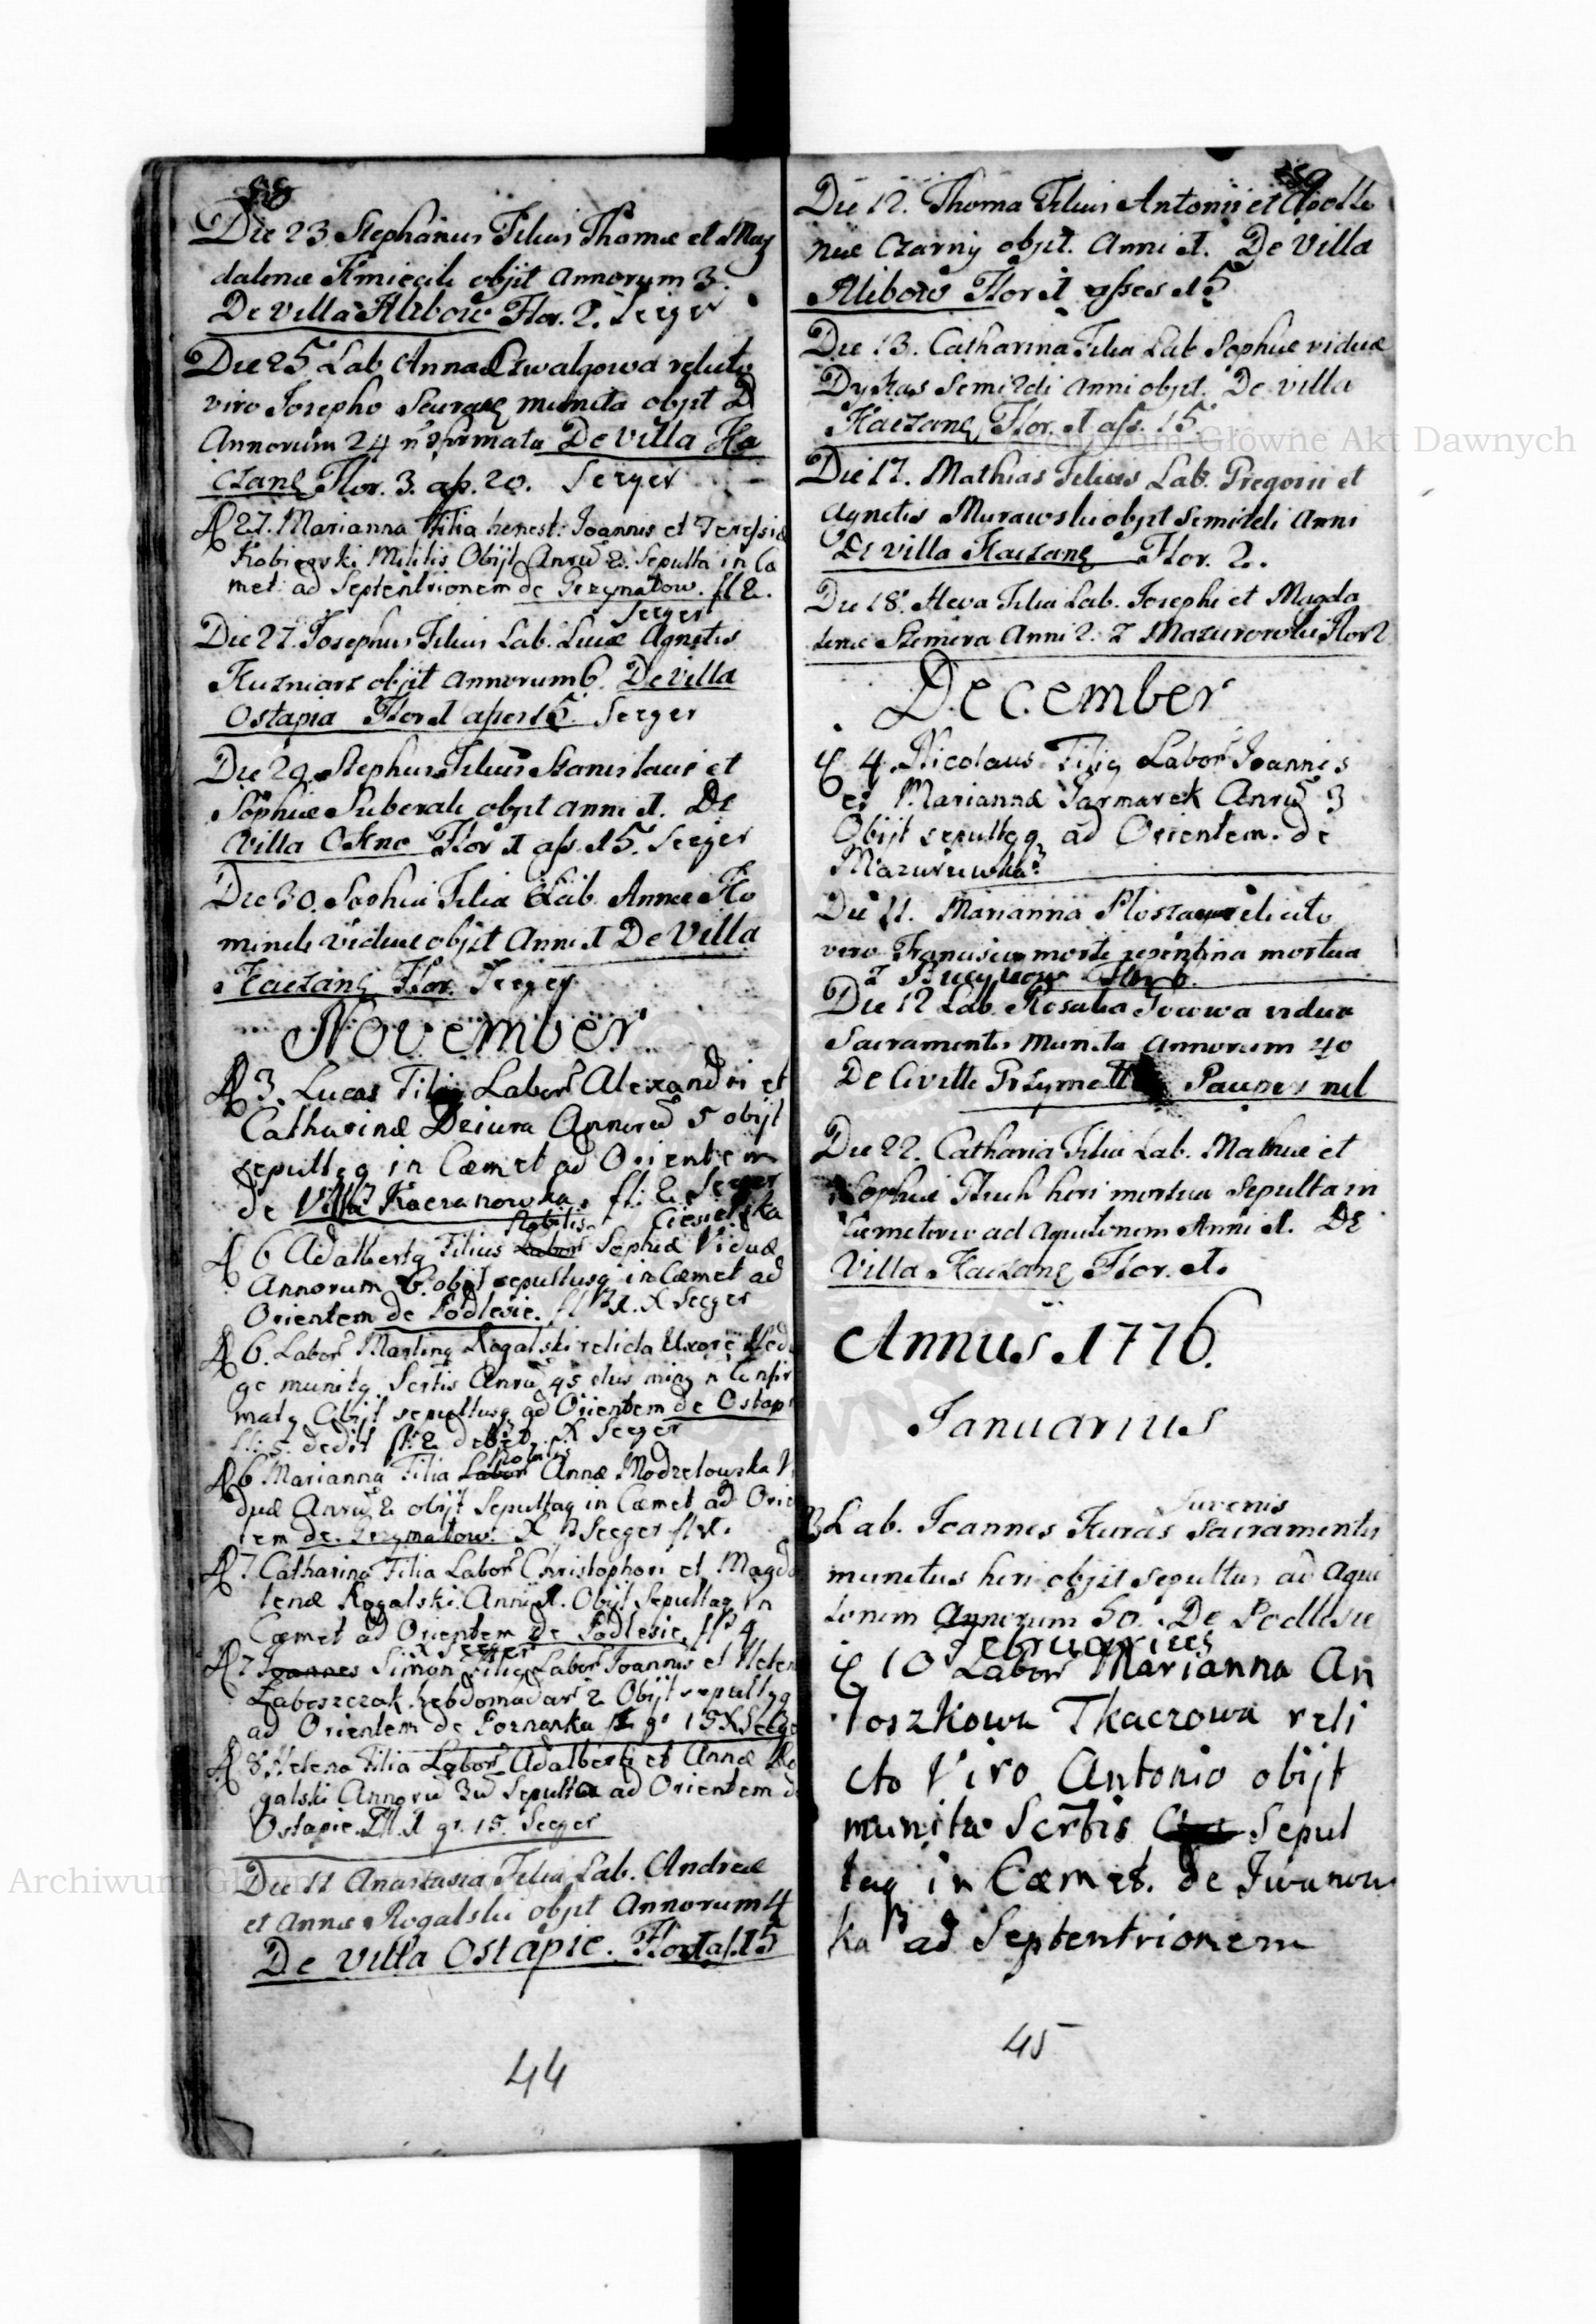 88
Die 23 Stephanus Filius Thomæ et Mag
dalenæ Kmiecik objit annorum 3.
De villa Klebow Flor. 2. Seeger
Die 25 Lab Anna relicto
viro Josepho munita objit
Annorum 24 De villa Ka
czanę Flor. 3. aß. 20. Seeger
D 27. Marianna Filia honest: Joannis et Teressiæ
Militis Obijt Anrũ 2. Sepulta in Cæ
met: ad Septentrionem de Grzymałow. fl 2.
Seeger
Die 27. Josephus Filius Lab. Lucæ Agnetis
Kuzniarz objit annorum 6. De villa
Ostapia Flor 1 asses 15. Seeger
Die 29. Stephus Filius Stanislavi et
Sophiæ objit anni 1. De
Villa Okno Flor 1 aß. 15. Seeger
Die 30. Sophia Filia Lab. Annæ Ko
viduæ objit Anni 1 De Villa
Kaczanę Flor. Seeger
November
D 3. Lucas Filiq Labor Alexandri et
Catharinæ Dziura Annorũ 5 obijt
sepultq q in Cæmet ad Orientem
de Villa Kaczanowka. fl: 2 Seeger
Nobilis Ciesielska
D 6 Adalbertq Filius Labor Sophiæ Viduæ
Annorum 6. obijt sepultusq in Cæmet ad
Orientem de Podlesie. fl 1. X Seeger
D 6. Labor Martinq Rogalski relicta Uxore Hedvi
ge munitq Scrtis Anrũ 45 plus minq n Confir
matq Obijt sepultusq ad Orientem de Ostap
fl: 5. dedit fl: 2 debet. X Seeger
Nobilis
D 6 Marianna Filia Labor Annæ Modzelowska Vi
duæ Anrũ 2 obijt Sepultaq in Cæmet ad Orien
tem de Grzymałow. X Seeger fl 1.
D 7 Catharina Filia Labor Christophori et Magda
lenæ Rogalski. Anni 1. Obijt Sepultaq in
Cæmet ad Orientem de Podlesie. fl 4
X Seeger
D 7 Joannes Simon Filiq Labor Joannis et Helen
Laboszczak hebdomadar 2 Obijt sepultq q
ad Orientem de Poznanka fl gr 15 X Seeger
D 8 Helena Filia Labor Adalberti et Annæ Ro
galski Annorũ 3ũ Sepulta ad Orientem de
Ostapie. Fl 1 gr. 15. Seeger
Die 11 Anastasia Filia Lab. Andreæ
et Annæ Rogalski objit Annorum 4
De Villa Ostapie. Flor 1 aß. 15
44
89
Die 12. Thoma Filius Antonii et Apollo
niæ Czarny objit. Anni 1. De Villa
Klibow Flor 1 asses 15
Die 13. Catharina Filia Lab Sophiæ viduæ
Dykas Semi 2di anni objit. De villa
Kaczanę Flor. 1 aß. 15
Die 17. Mathias Filius Lab. Gregorii et
Agnetis Murawski objit Semi 2di Anni
De villa Kaczanę Flor. 2.
Die 18. Heva Filia Lab. Josephi et Magda
lenæ Anni 2. z Mazurowki Flor 2
December
D 4. Nicolaus Filiq Labor Joannis
et Mariannæ Jarmarek Anrũ 3
Obijt sepultq q ad Orientem. de
Mazuruwka
Die 11. Marianna relicto
viro Francisco morte repentina mortua
z Flor 6.
Die 12 Lab. Rosalia vidua
Sacramentis munita annorum 40
De Civitte Pauper nil
Die 22. Catharia Filia Lab. Mathiæ et
Sophiæ heri mortua Sepulta in
Cemeterio ad aquilonem Anni 1. De
Villa Kaczanę Flor. 1.
Annus 1776.
Januarius
Juvenis
Lab. Joannes Kuras Sacramentis
munitus heri objit sepultus ad aqui
lonem Annorum 50. De Podlesie
Februarius
D 10 Labor Marianna An
toszkowa Tkaczowa reli
cto Viro Antonio obijt
munita Scrtis Sepul
taq in Cæmet. de Iwanow
ka ad Septentrionem
45
Archiwum Główne Akt Dawnych